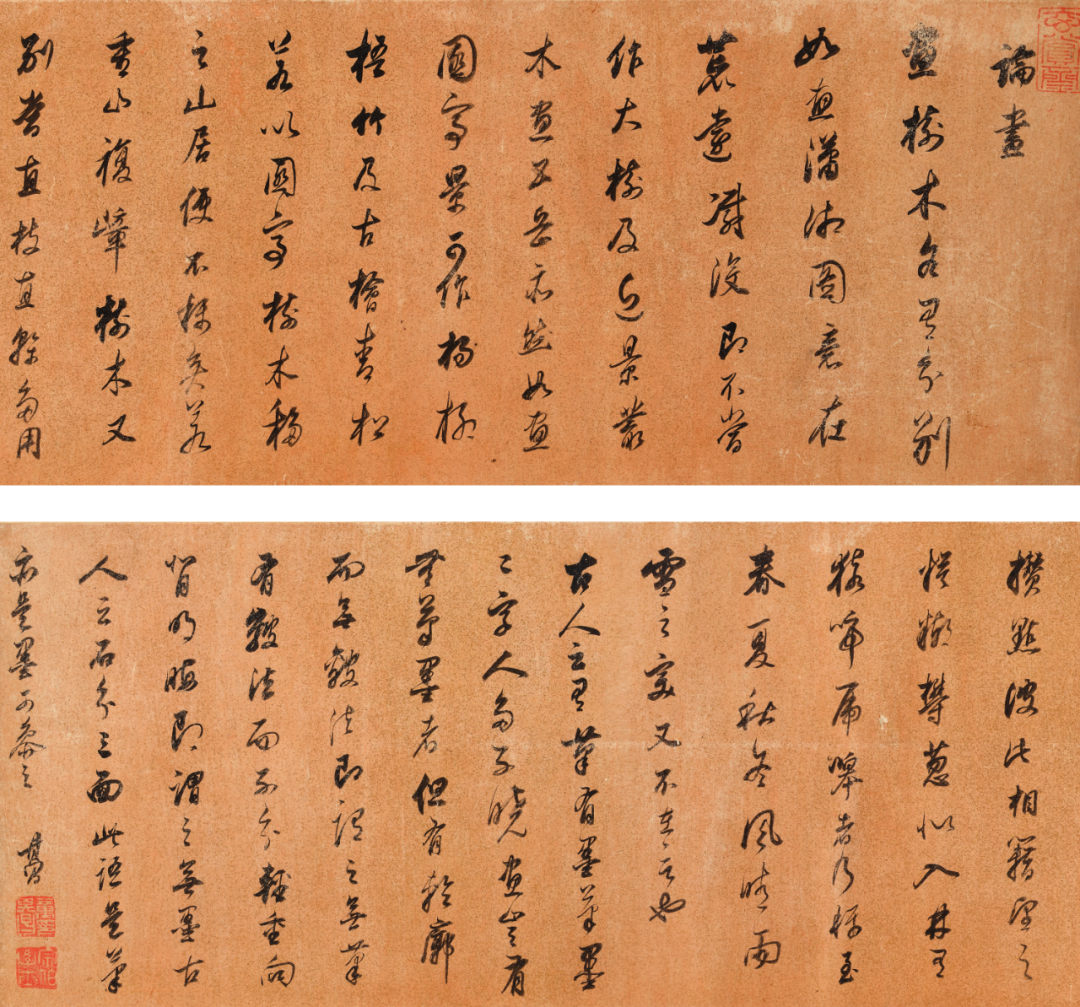 論畫
畫樹木各有分別
如畫瀟湘圖意在
荒遠滅沒即不當
作大樹及近景叢
木畫五岳亦然如畫
園亭景可作楊柳
梧竹及古檜青松
若以園亭樹木移
之山居便不稱矣若
重山複嶂樹木又
別當直枝直幹多用
攢點彼此相藉望之
模糊鬱蔥似入林有
猿啼虎嗥者乃稱至
春夏秋冬風晴雨
雪之變又不在言也
古人云有筆有墨筆墨
二字人多不曉畫豈有
無筆墨者但有輪廓
而無皴法即謂之無筆
有皴法而不分輕重向
背明晦即謂之無墨古
人云石分三面此語是筆
亦是墨可參之
其昌